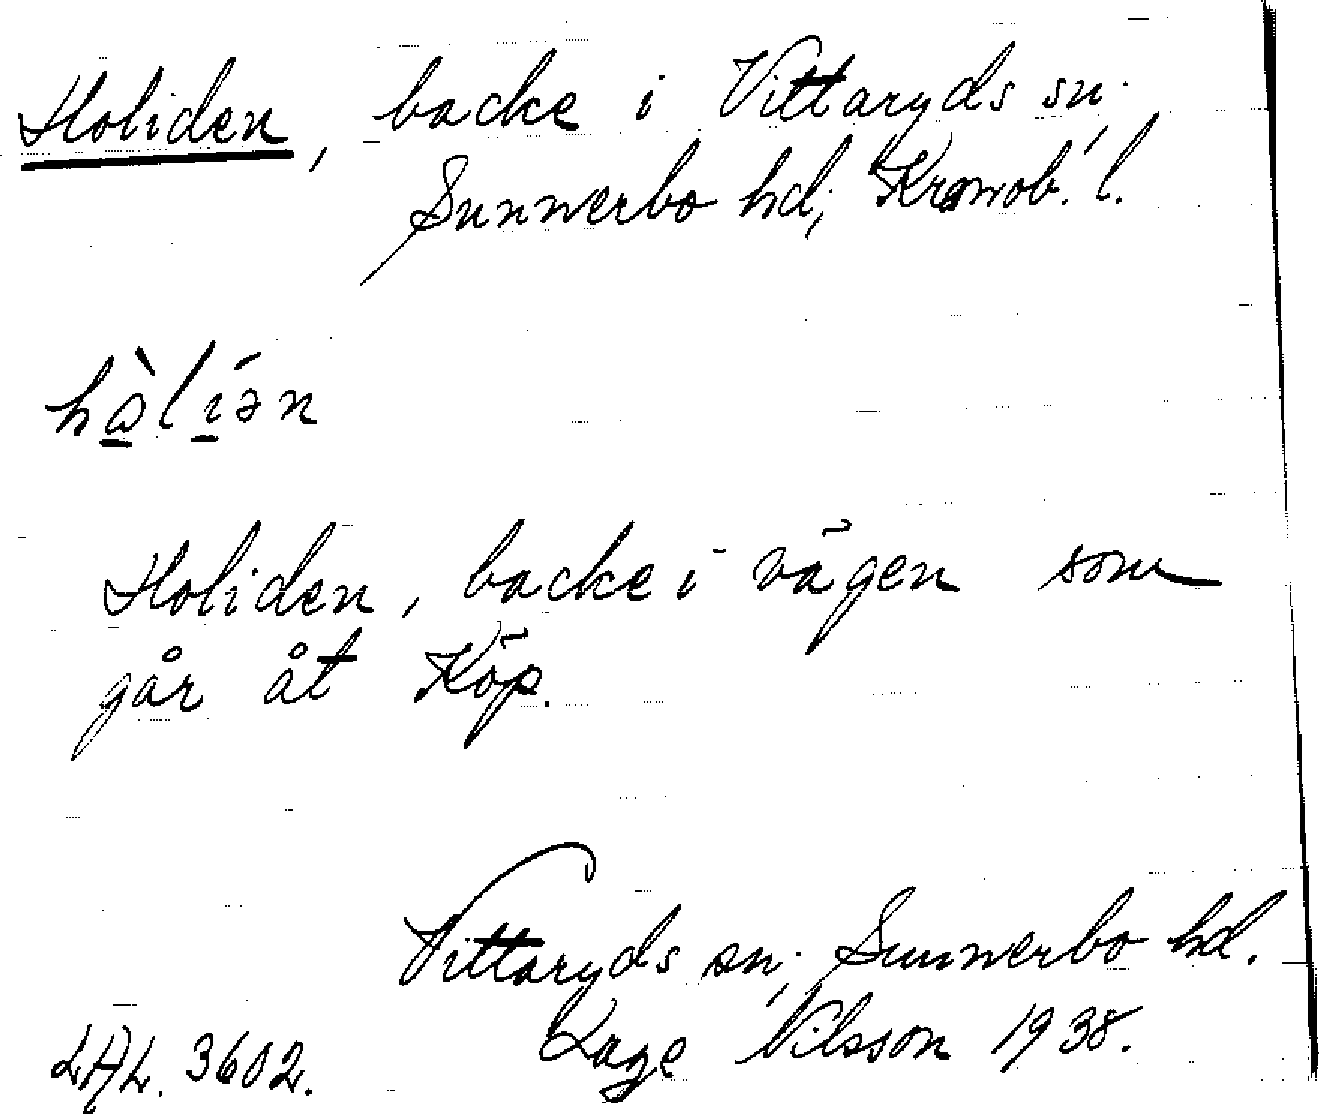 Holiden, backe i Vittaryds sn.
Sunnerbo hd, Kronob. l.
hàlíən
Holiden, backe i vägen som
går åt Köp.
Vittaryds sn, Sunnerbo hd.
LAL. 3602. Lage Nilsson 1938.